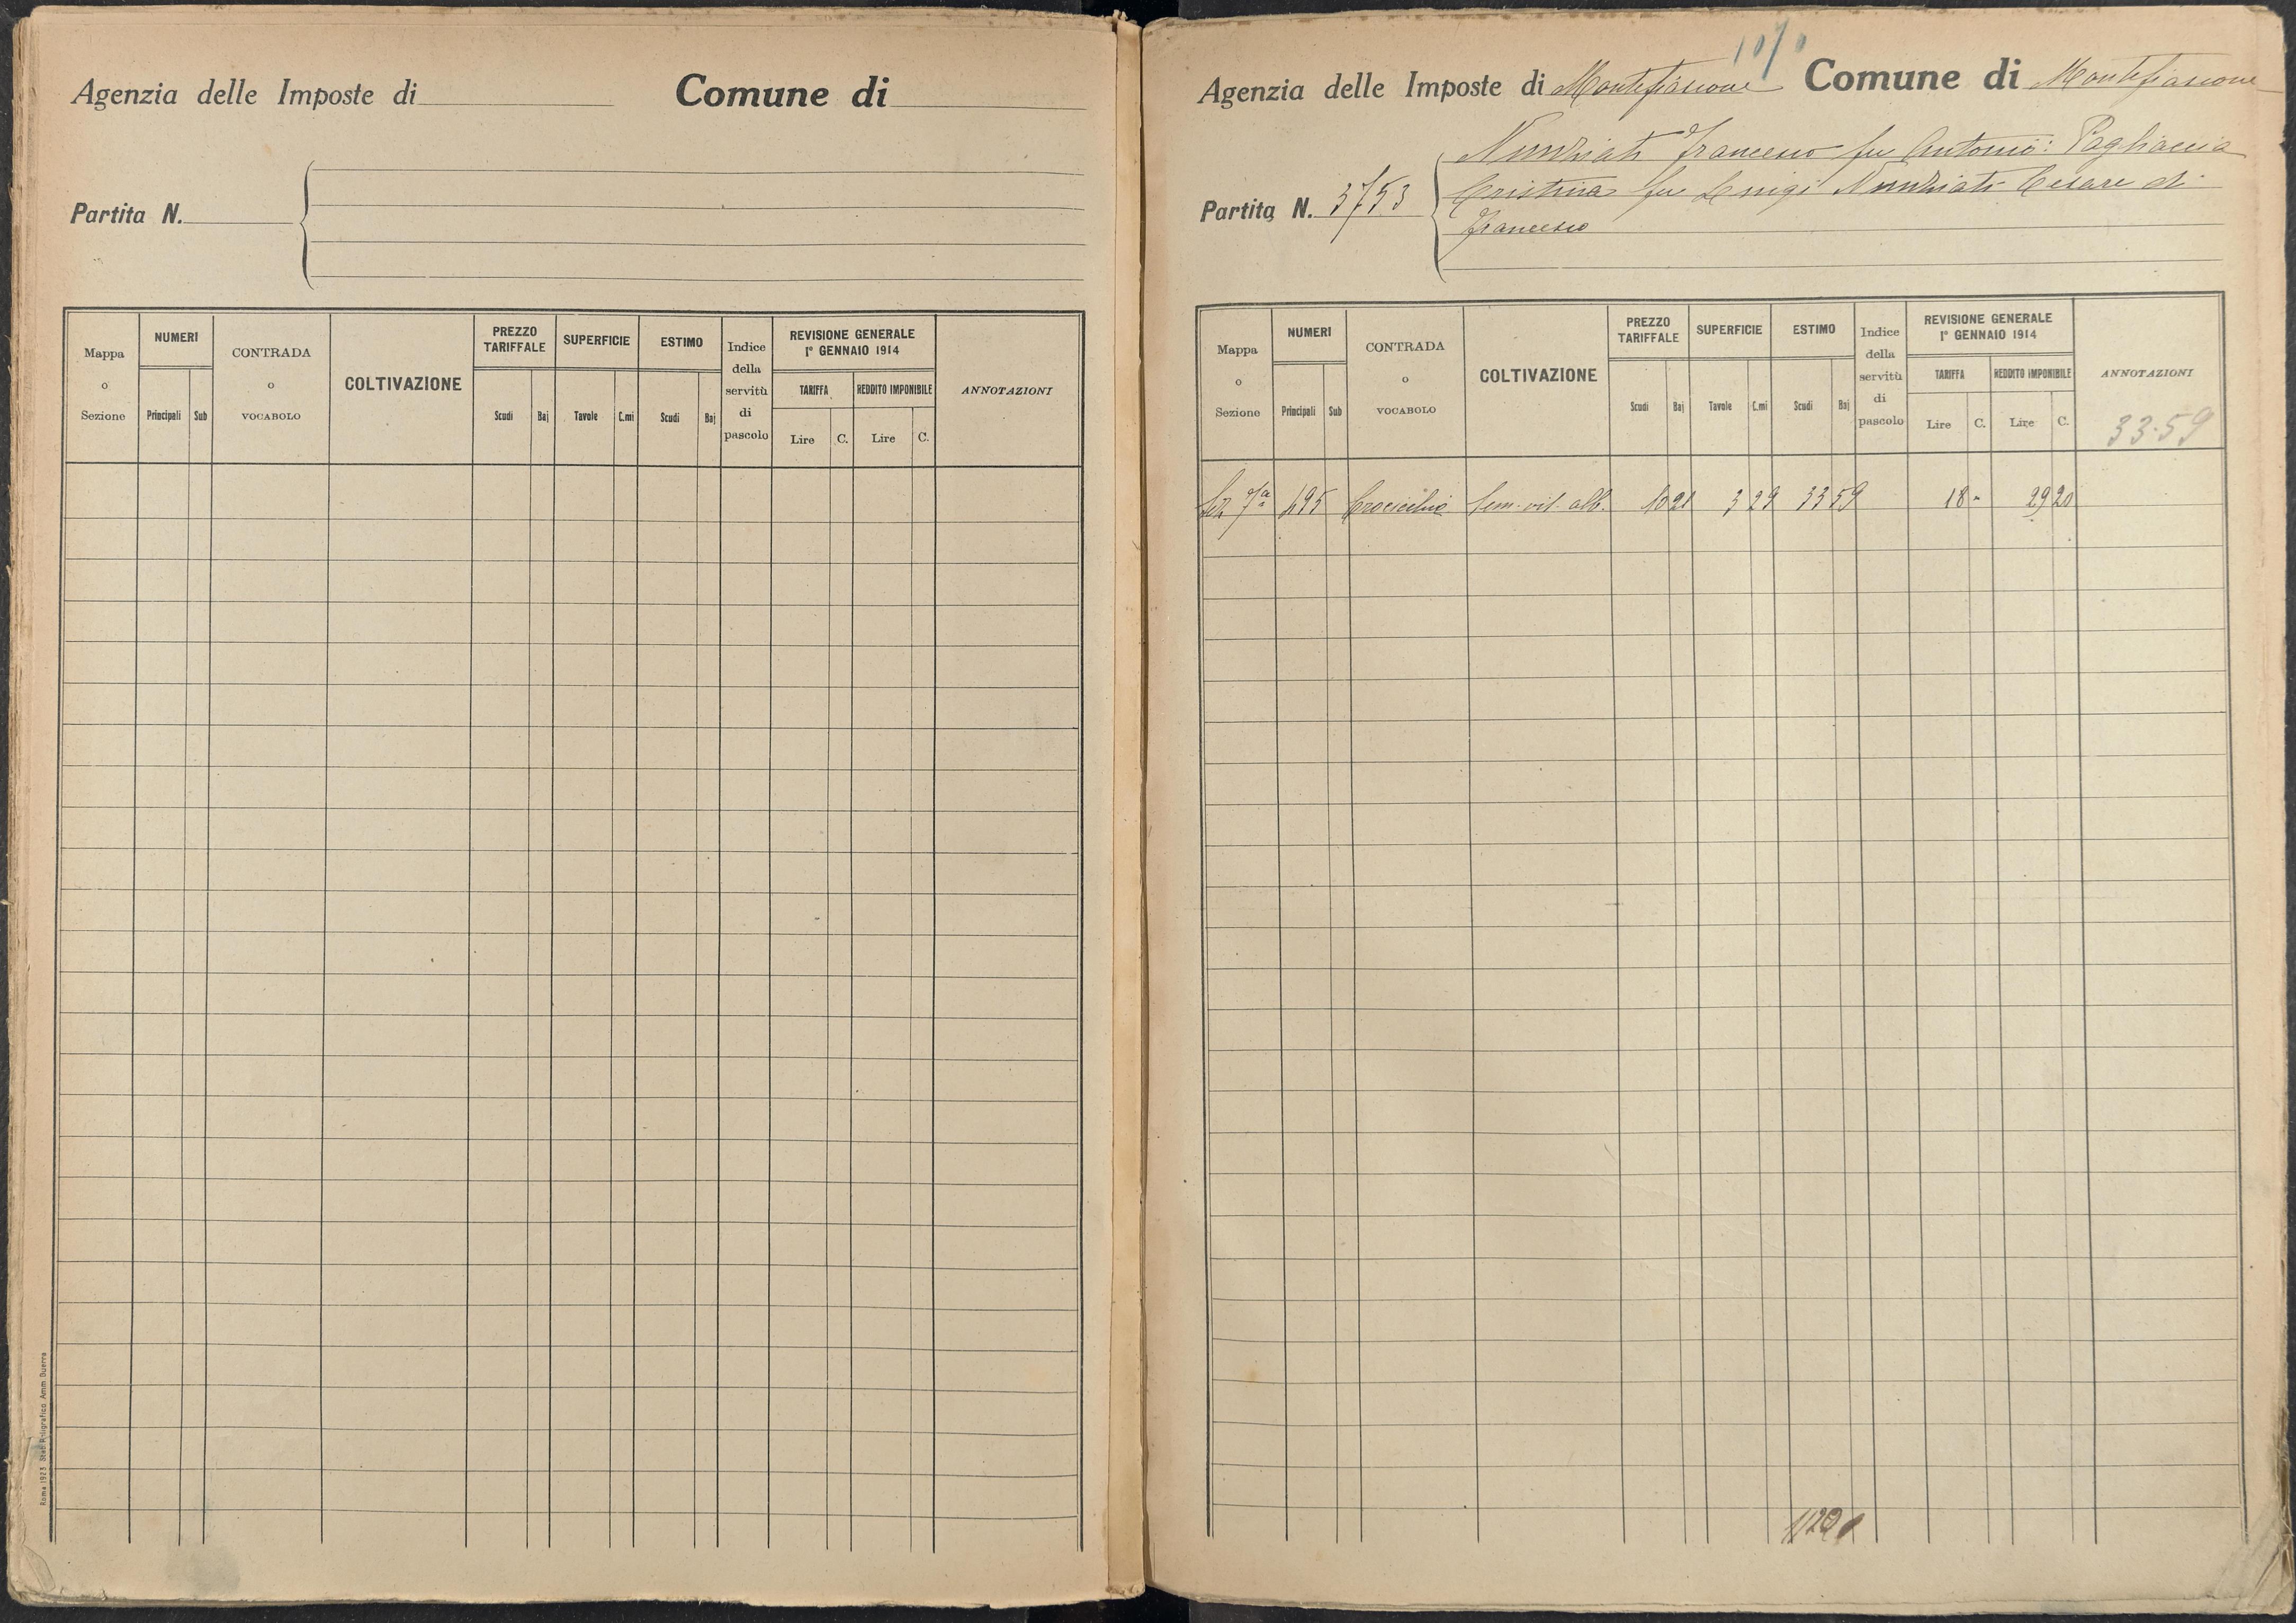 Agenzia delle Imposte di Comune di
Partita N.
Mappa o Sezione NUMERI Principali Sub CONTRADA o VOCABOLO COLTIVAZIONE PREZZO TARIFFALE Scudi Baj SUPERFICIE Tavole C.mi ESTIMO Scudi Baj Indice della servitù di pascolo REVISIONE GENERALE 1° GENNAIO 1914 TARIFFA Lire C. REDDITO IMPONIBILE Lire C. ANNOTAZIONI
Roma 1923 Stab. Poligrafico Amm Guerra
Agenzia delle Imposte di Montefiascone Comune di Montefiascone
Nunziati Francesco fu Antonio: Pagliaccia
Partita N. 3753 Cristina fu Luigi Nunziati Cesare di
Francesco
Mappa o Sezione NUMERI Principali Sub CONTRADA o VOCABOLO COLTIVAZIONE PREZZO TARIFFALE Scudi Baj SUPERFICIE Tavole C.mi ESTIMO Scudi Baj Indice della servitù di pascolo REVISIONE GENERALE 1° GENNAIO 1914 TARIFFA Lire C. REDDITO IMPONIBILE Lire C. ANNOTAZIONI
33.59
Sez 7ª 495 Sem. vit. alb. 10 21 3 29 33 59 18 - 29 20